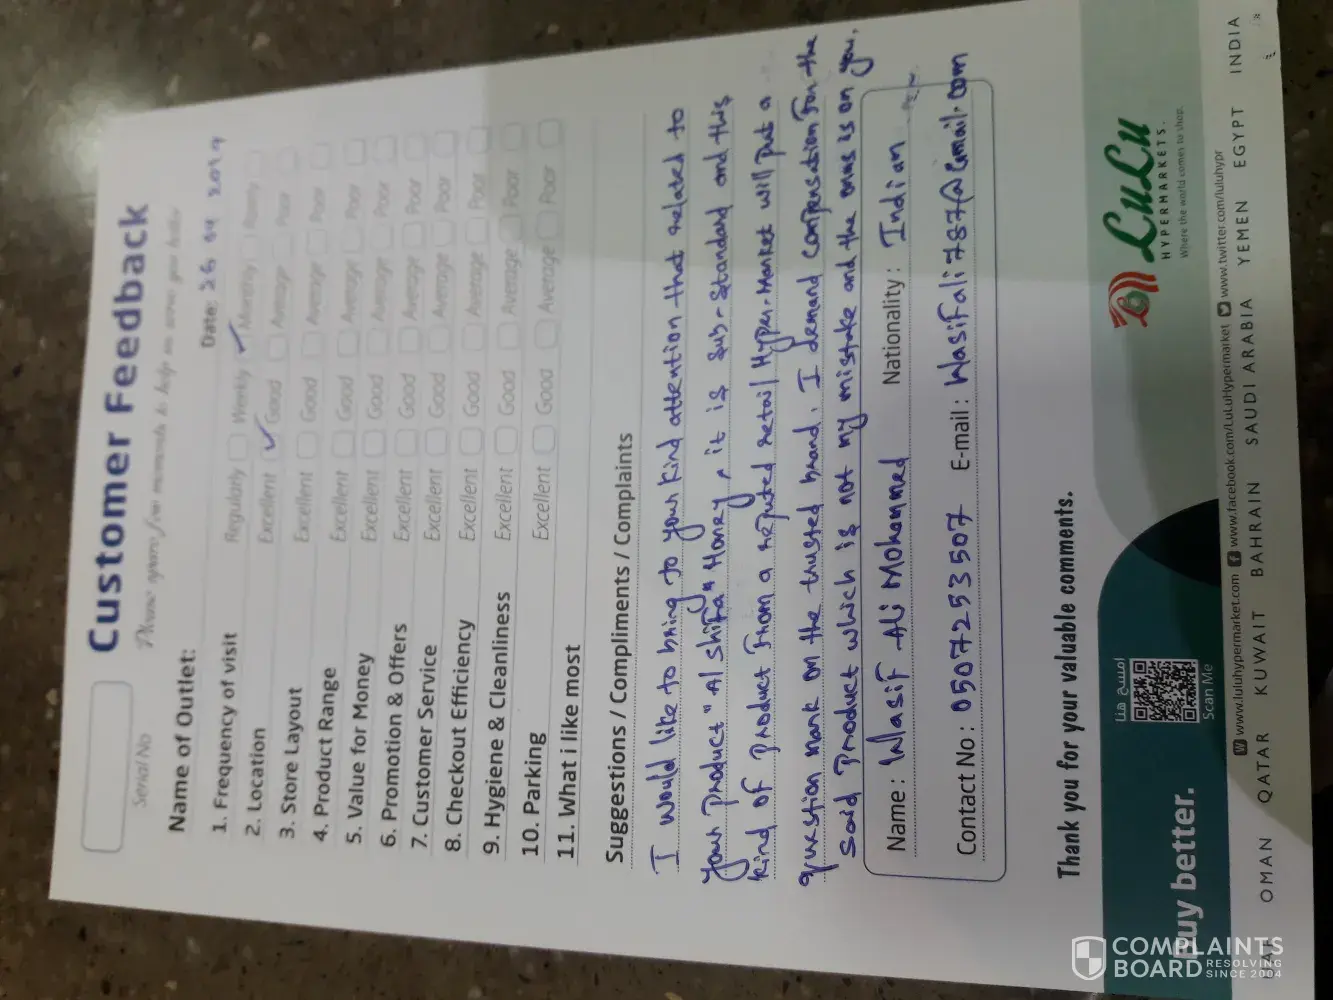 Customer Feedback
Serial No
Please spare few moments to help us serve you better
Name of Outlet:
Date: 26 04 2019
1. Frequency of visit Regularly Weekly Monthly Rarely
2. Location Excellent Good Average Poor
3. Store Layout Excellent Good Average Poor
4. Product Range Excellent Good Average Poor
5. Value for Money Excellent Good Average Poor
6. Promotion & Offers Excellent Good Average Poor
7. Customer Service Excellent Good Average Poor
8. Checkout Efficiency Excellent Good Average Poor
9. Hygiene & Cleanliness Excellent Good Average Poor
10. Parking Excellent Good Average Poor
11. What i like most
Suggestions / Compliments / Complaints
I would like to bring to your kind attention that related to
your product "Al shifa" Honey, it is sub-standard and this
kind of product from a reputed retail Hyper-Market will put a
question mark on the trusted brand. I demand compensation for the
said product which is not my mistake and the onus is on you.
Name: Wasif Ali Mohammed Nationality: Indian
Contact No: 0507253507 E-mail: Wasifali787@Gmail.com
Thank you for your valuable comments.
Buy better.
امسح هنا
Scan Me
LuLu
HYPERMARKETS.
Where the world comes to shop.
www.luluhypermarket.com www.facebook.com/LuLuHypermarket www.twitter.com/luluhypr
UAE OMAN QATAR KUWAIT BAHRAIN SAUDI ARABIA YEMEN EGYPT INDIA
COMPLAINTS
BOARD RESOLVING
SINCE 2004